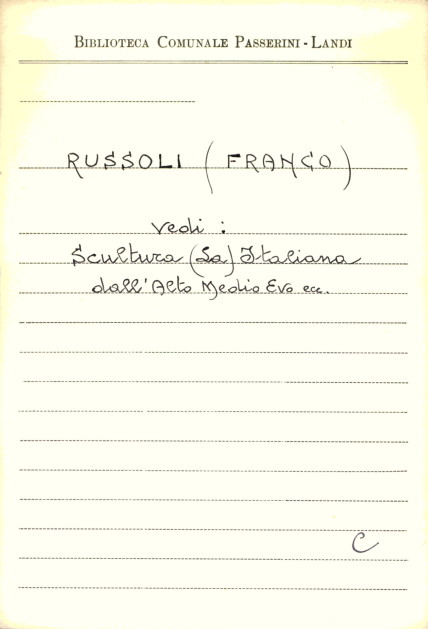 BIBLIOTECA COMUNALE PASSERINI - LANDI
RUSSOLI (FRANCO)
vedi :
Scultura (La) Italiana
dall'Alto Medio Evo ecc.
C